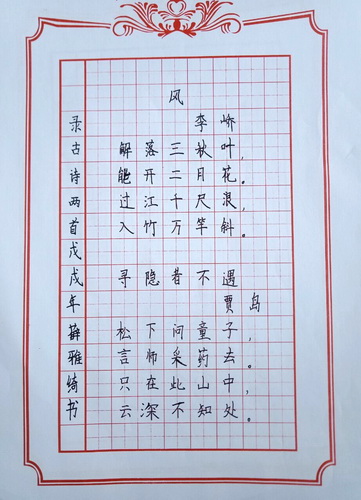 风
李峤
解落三秋叶,
能开二月花。
过江千尺浪,
入竹万竿斜。
寻隐者不遇
贾岛
松下问童子,
言师采药去。
只在此山中,
云深不知处。
录古诗两首戊戌年薛雅绮书